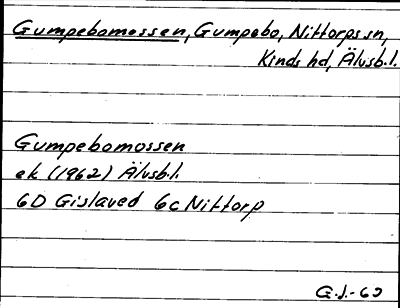 Gumpebomossen, Gumpebo, Nittorps sn,
Kinds hd, Älvsb.l.
Gumpebomossen
ek (1962) Älvsb.l.
6D Gislaved 6c Nittorp
G.J.-63